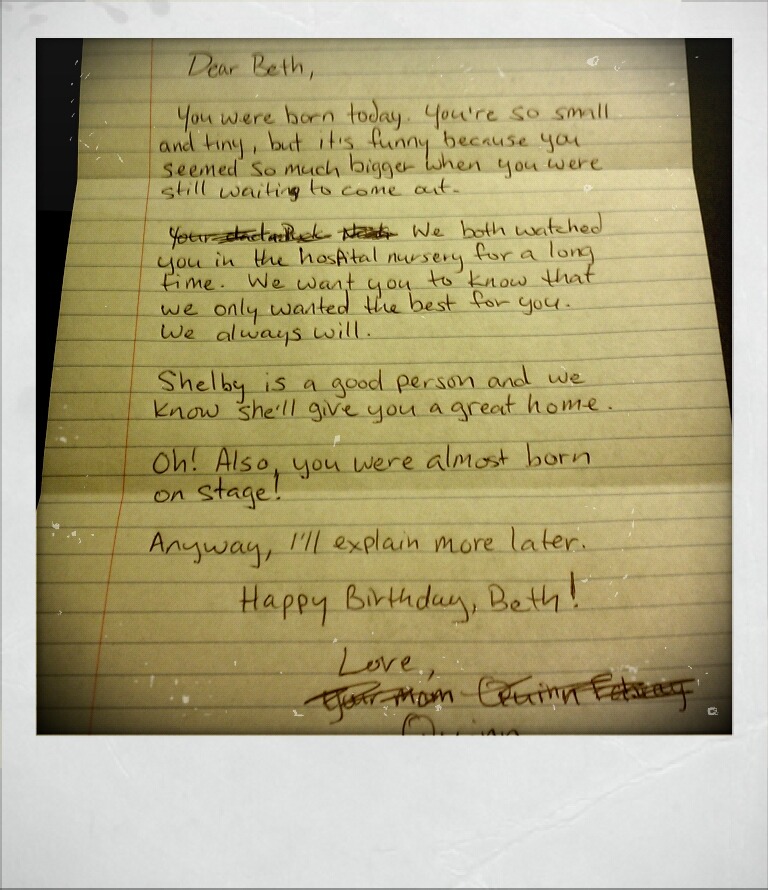 Dear Beth,
You were born today. You're so small
and tiny, but it's funny because you
seemed so much bigger when you were
still waiting to come out.
Your Puck We both watched
you in the hospital nursery for a long
time. We want you to know that
we only wanted the best for you.
We always will.
Shelby is a good person and we
know she'll give you a great home.
Oh! Also, you were almost born
on stage!
Anyway, I'll explain more later.
Happy Birthday, Beth!
Love,
Your mom Quinn Fabray
Quinn